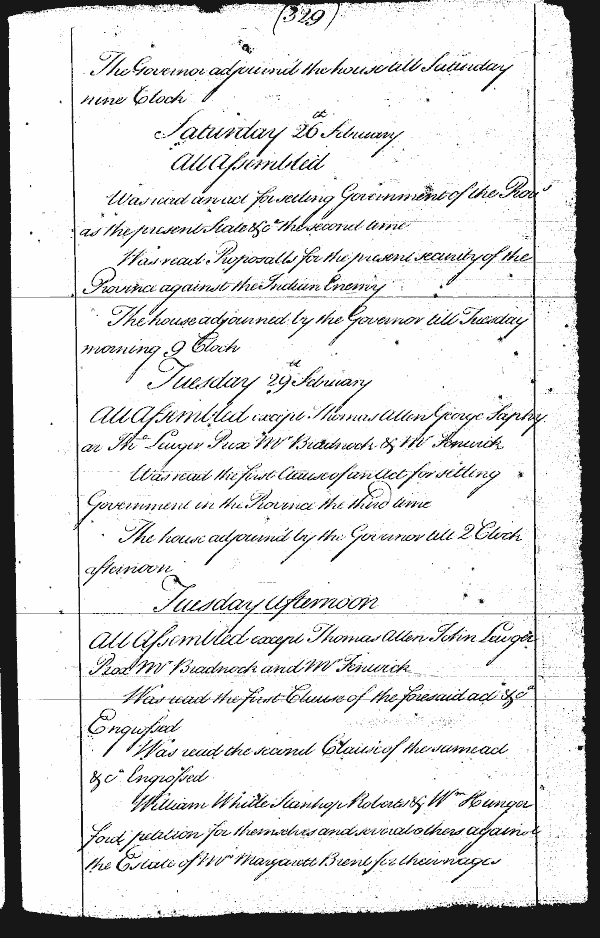 (329)
The Governor adjourn'd the house till Saturday
nine Clock
Saturday 26th February
All Assembled
Was read an act for setling Government of the Prov
as the present State &ca the second time
Was read Proposalls for the present security of the
Province against the Indian Enemy
The house adjourned by the Governor till Tuesday
morning 9 Clock
Tuesday 29th February
All Assembled except Thomas Allen George
Prox Mr Bradnock & Mr Fenwick
Was read the first Clause of an Act for setling
Government in the Province the third time
The house adjourn'd by the Governor till 2 Clock
afternoon
Tuesday afternoon
All Assembled except Thomas Allen John Lewger
Prox Mr Bradnock and Mr Fenwick
Was read the first Clause of the foresaid act &ca
Engrossed
Was read the second Clause of the same act
&ca Engrossed
William White Stanhop Roberts & Wm Hunger
ford petition for themselves and several others against
the Estate of Mrs Margarett Brent for their wages